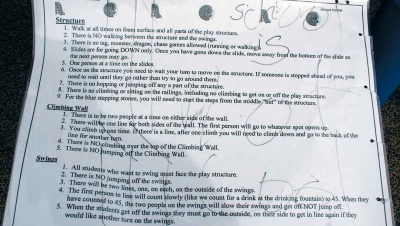 Structure
1. Walk at all times on foam surface and all parts of the play structure.
2. There is NO walking between the structure and the swings.
3. There is no tag, monster, dragon, chase games allowed (running or walking).
4. Slides are for going DOWN only. Once you have gone down the slide, move away from the bottom of the slide so
the next person may go.
5. One person at a time on the slides.
6. Once on the structure you need to wait your turn to move on the structure. If someone is stopped ahead of you, you
need to wait until they go rather than try to go around them.
7. There is no hopping or jumping off any part of the structure.
8. There is no climbing or sitting on the railings, including no climbing to get on or off the play structure.
9. For the blue stepping stones, you will need to start the steps from the middle "hut" of the structure.
Climbing Wall
1. There is to be two people at a time on either side of the wall.
2. There will be one line for both sides of the wall. The first person will go to whatever spot opens up.
3. You climb up one time. If there's a line, after one climb you will need to climb down and go to the back of the
line for another turn.
4. There is NO climbing over the top of the Climbing Wall.
5. There is NO jumping off the Climbing Wall.
Swings
1. All students who want to swing must face the play structure.
2. There is NO jumping off the swings.
3. There will be two lines, one, on each, on the outside of the swings.
4. The first person in line will count slowly (like we count for a drink at the drinking fountain) to 45. When they
have counted to 45, the two people on the swings will slow their swings and get off NOT jump off.
5. When the students get off the swings they must go to the outside, on their side to get in line again if they
would like another turn on the swings.